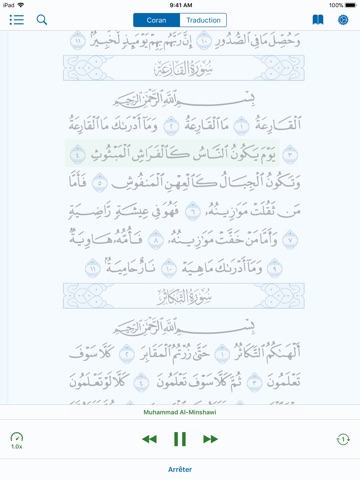 iPad 9:41 AM 100%
Coran Traduction
وَحُصِّلَ مَا فِي ٱلصُّدُورِ ١٠ إِنَّ رَبَّهُم بِهِمۡ يَوۡمَئِذٖ لَّخَبِيرُۢ ١١
سُورَةُ القَارِعَةِ
بِسۡمِ ٱللَّهِ ٱلرَّحۡمَٰنِ ٱلرَّحِيمِ
ٱلۡقَارِعَةُ ١ مَا ٱلۡقَارِعَةُ ٢ وَمَآ أَدۡرَىٰكَ مَا ٱلۡقَارِعَةُ
٣ يَوۡمَ يَكُونُ ٱلنَّاسُ كَٱلۡفَرَاشِ ٱلۡمَبۡثُوثِ ٤
وَتَكُونُ ٱلۡجِبَالُ كَٱلۡعِهۡنِ ٱلۡمَنفُوشِ ٥ فَأَمَّا
مَن ثَقُلَتۡ مَوَٰزِينُهُۥ ٦ فَهُوَ فِي عِيشَةٖ رَّاضِيَةٖ
٧ وَأَمَّا مَنۡ خَفَّتۡ مَوَٰزِينُهُۥ ٨ فَأُمُّهُۥ هَاوِيَةٞ
٩ وَمَآ أَدۡرَىٰكَ مَا هِيَهۡ ١٠ نَارٌ حَامِيَةُۢ ١١
سُورَةُ التَّكَاثُرِ
بِسۡمِ ٱللَّهِ ٱلرَّحۡمَٰنِ ٱلرَّحِيمِ
أَلۡهَىٰكُمُ ٱلتَّكَاثُرُ ١ حَتَّىٰ زُرۡتُمُ ٱلۡمَقَابِرَ ٢ كَلَّا سَوۡفَ
تَعۡلَمُونَ ٣ ثُمَّ كَلَّا سَوۡفَ تَعۡلَمُونَ ٤ كَلَّا لَوۡ تَعۡلَمُونَ
Muhammad Al-Minshawi
1.0x
1
Arrêter